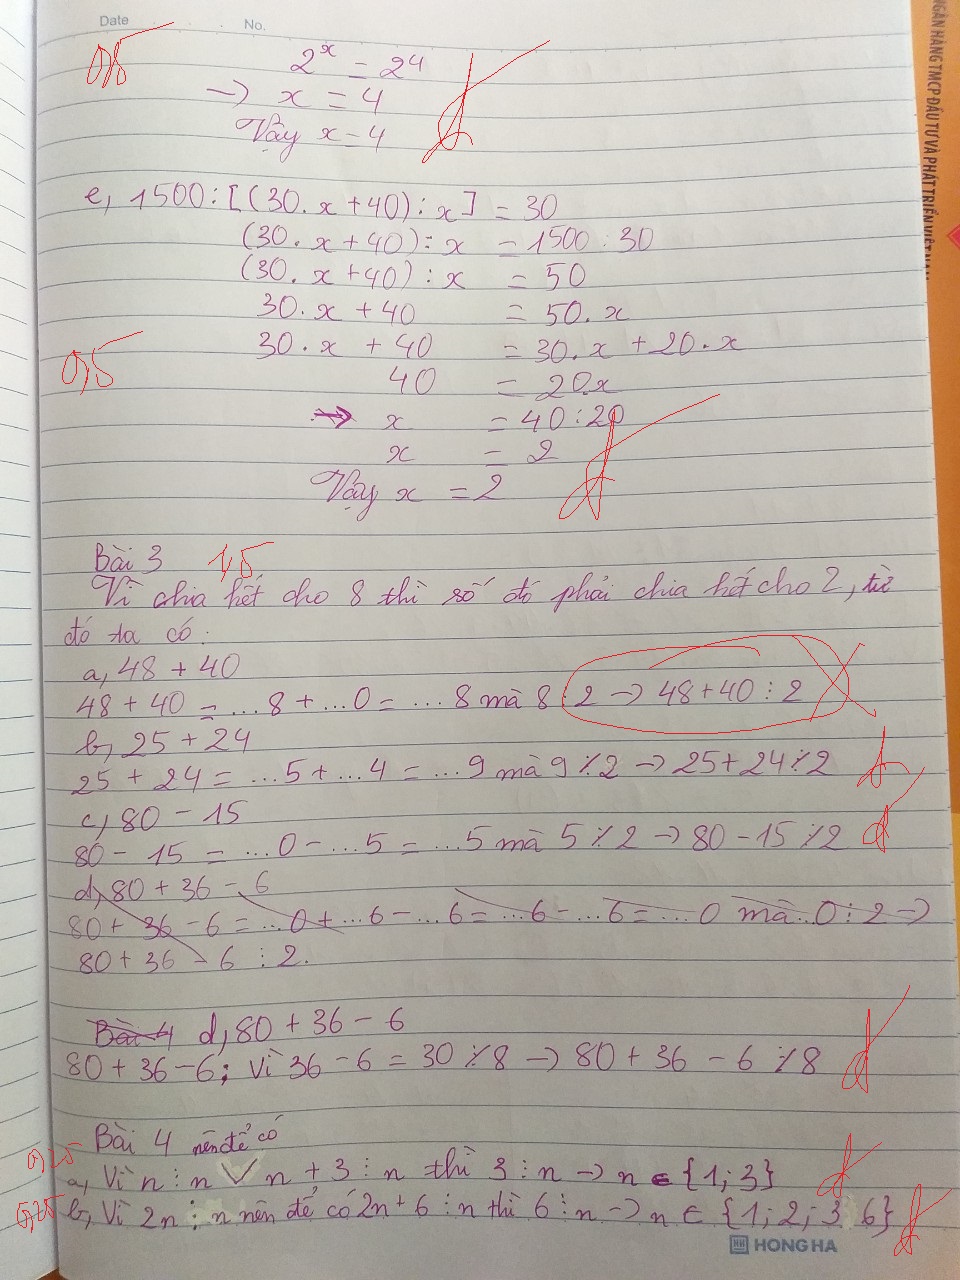 Date No.
0,5
2^x = 2^4
→ x = 4
Vậy x = 4
e, 1500 : [(30 . x + 40) : x] = 30
(30 . x + 40) : x = 1500 : 30
(30 . x + 40) : x = 50
30 . x + 40 = 50 . x
30 . x + 40 = 30 . x + 20 . x
0,5
40 = 20.x
→ x = 40 : 20
x = 2
Vậy x = 2
Bài 3 1,5
Vì chia hết cho 8 thì số đó phải chia hết cho 2, từ
đó ta có :
a, 48 + 40
48 + 40 = ...8 + ...0 = ...8 mà 8 ⋮ 2 → 48 + 40 ⋮ 2
b, 25 + 24
25 + 24 = ...5 + ...4 = ...9 mà 9 ⋮̸ 2 → 25 + 24 ⋮̸ 2
c, 80 - 15
80 - 15 = ...0 - ...5 = ...5 mà 5 ⋮̸ 2 → 80 - 15 ⋮̸ 2
d, 80 + 36 - 6
80 + 36 - 6 = ...0 + ...6 - ...6 = ...6 - ...6 = ...0 mà ...0 ⋮ 2 →
80 + 36 - 6 ⋮ 2.
Bài 4 d, 80 + 36 - 6
80 + 36 - 6 ; Vì 36 - 6 = 30 ⋮̸ 8 → 80 + 36 - 6 ⋮̸ 8
Bài 4 nên để có
0,25 a, Vì n ⋮ n ∨ n + 3 ⋮ n thì 3 ⋮ n → n ∈ {1; 3}
0,25 b, Vì 2n ⋮ n nên để có 2n + 6 ⋮ n thì 6 ⋮ n → n ∈ {1; 2; 3 6}
HONG HA
NGÂN HÀNG TMCP ĐẦU TƯ VÀ PHÁT TRIỂN VIỆT NAM